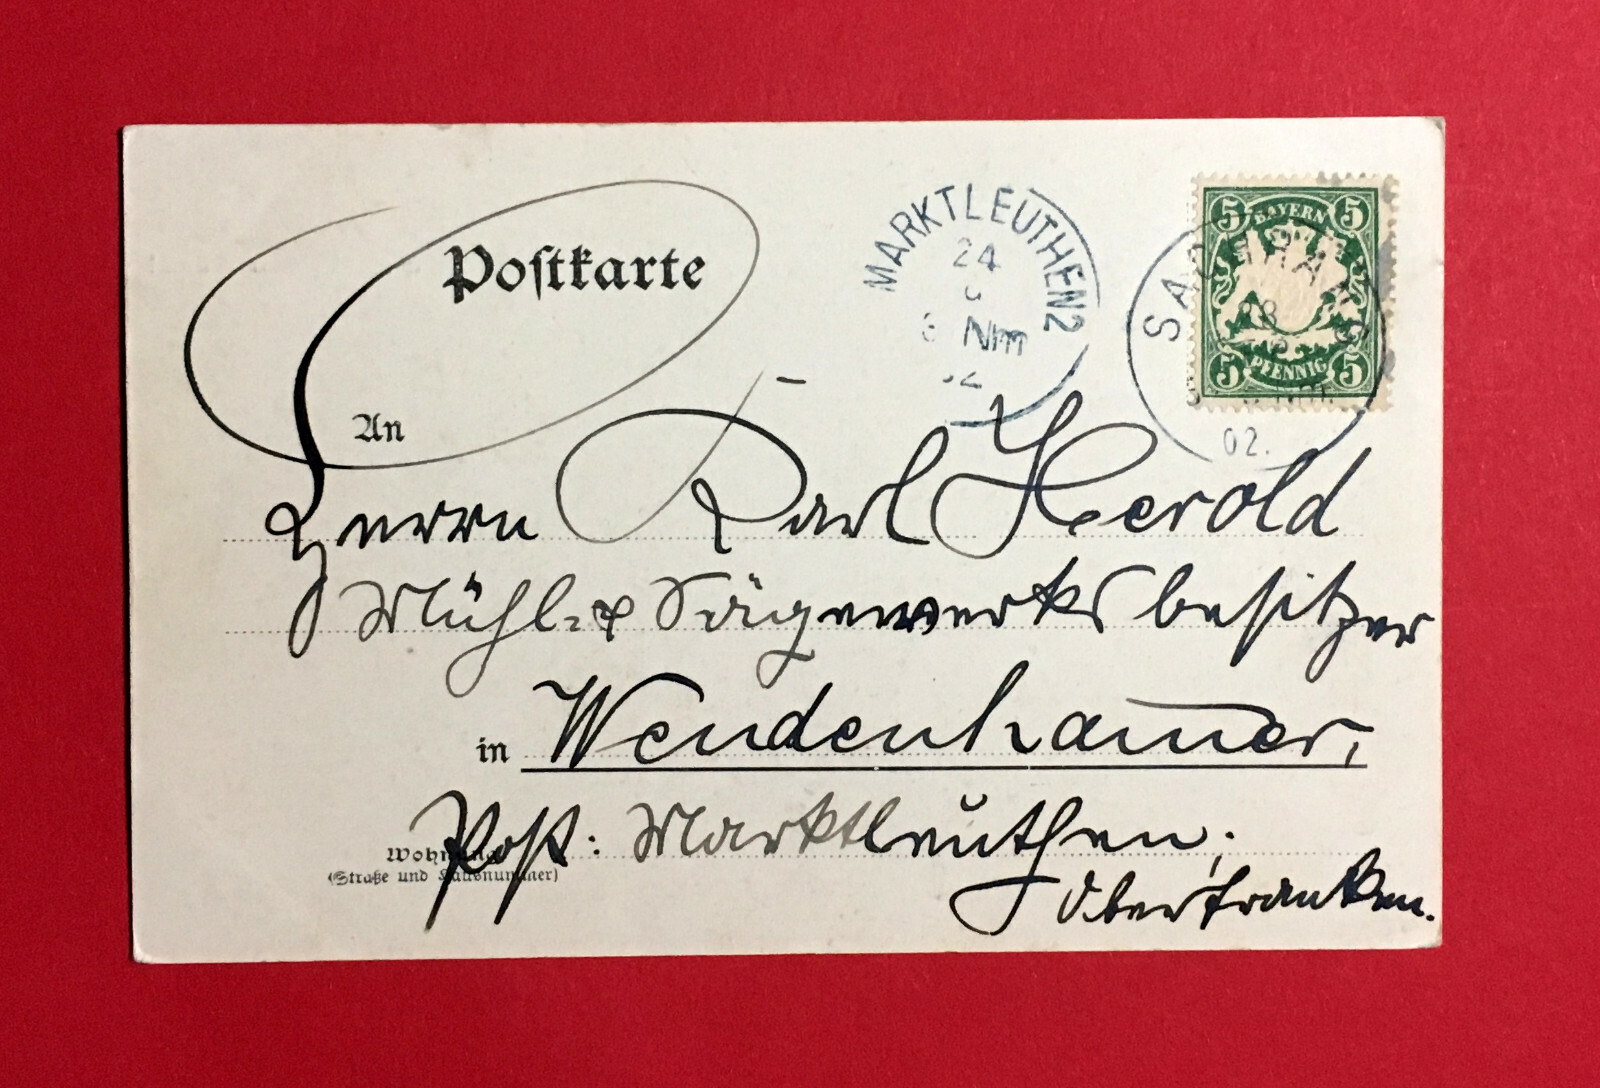 Postkarte
MARKTLEUTHEN 2
24
Nm
5 BAYERN 5
5 PFENNIG 5
02.
An
Herrn Karl Herold
Mühl- & Sägewerksbesitzer
in Wendenham̅er,
Post: Marktleuthen,
Wohnung
(Straße und Hausnummer)
Oberfranken.